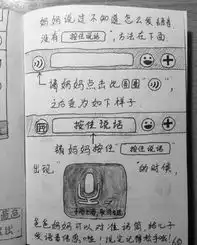 妈妈说过不知道怎么发语音
没有 按住说话,方法在下面
请妈妈点击此图“ ”,
之后变为如下样子
按住说话
请妈妈按住“按住说话”
出现“ ”的时候,
手指上滑,取消发送
爸爸妈妈可以对准话筒给儿子